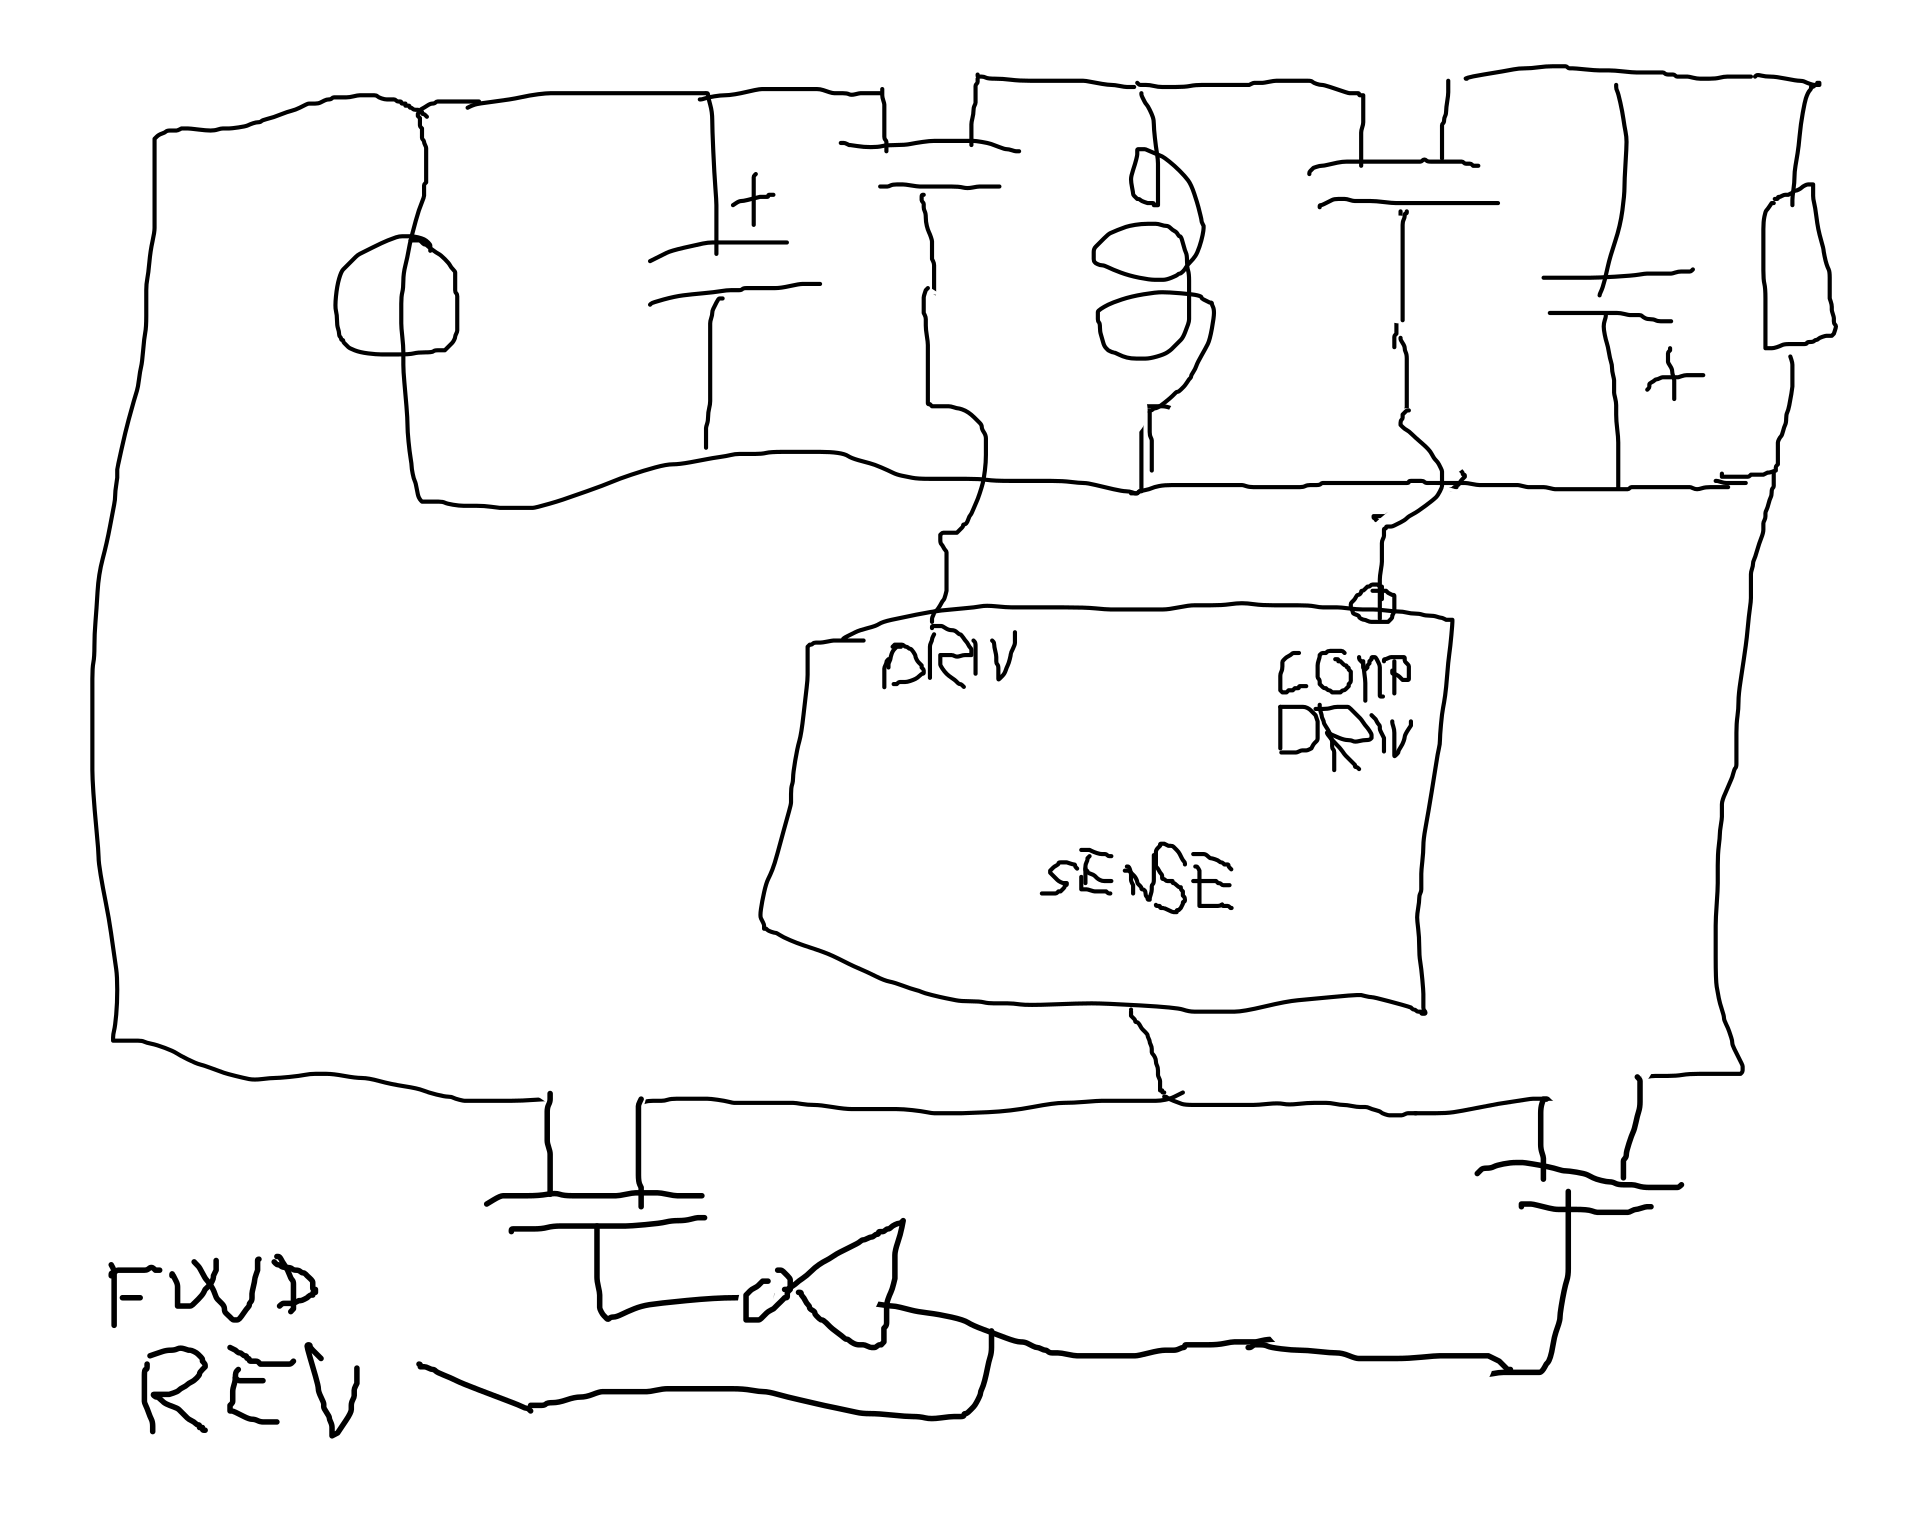 +
+
DRIV
COMP
DRIV
SENSE
FWD
REV